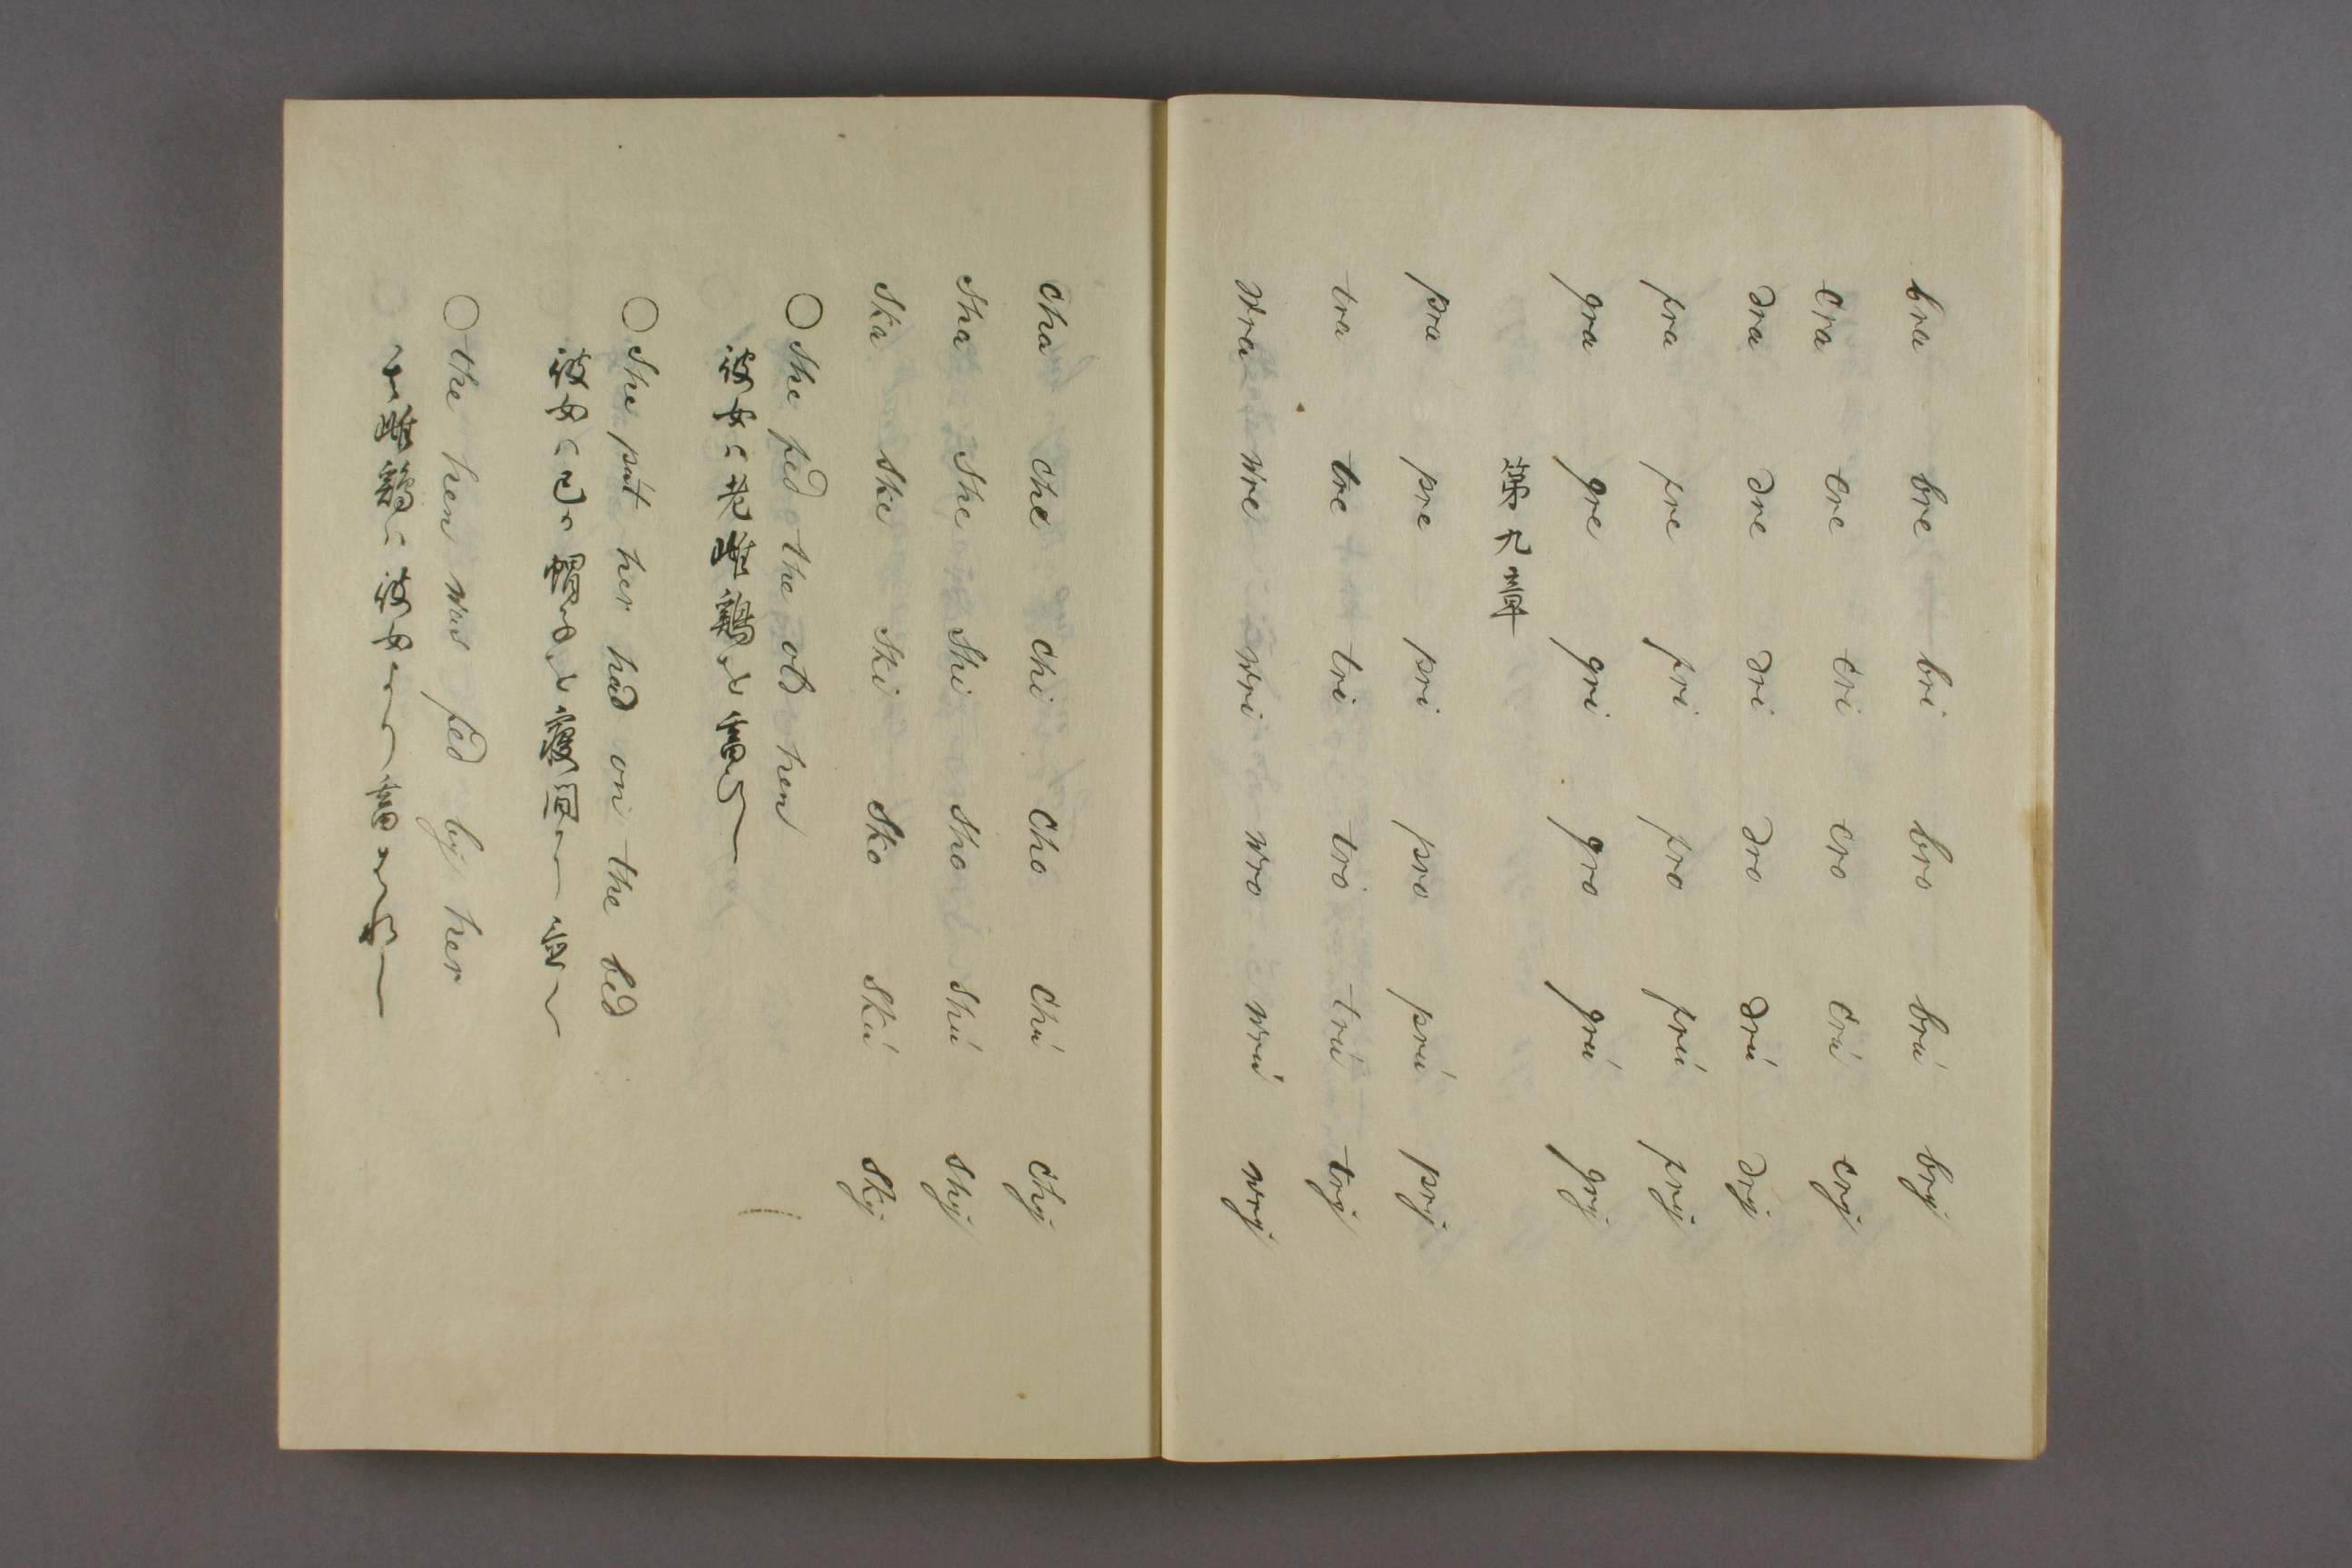 bra bre bri bro brú brÿ
cra cre cri cro crú crÿ
dra dre dri dro drú drÿ
fra fre fri fro frú frÿ
gra gre gri gro grú grÿ
第九章
pra pre pri pro prú prÿ
tra tre tri tro trú trÿ
wra wre wri wro wrú wrÿ
cha che chi cho chú chÿ
sha she shi sho shú shÿ
ska ske ski sko skú skÿ
○ she fed the old hen
彼女ハ老雌鶏ヲ畜フ
○ she pút her had on the bed
彼女ハ己ノ帽子ヲ寝間ニ置ク
○ the hen was fed bÿ her
雌鶏ハ彼女ニ畜ハ